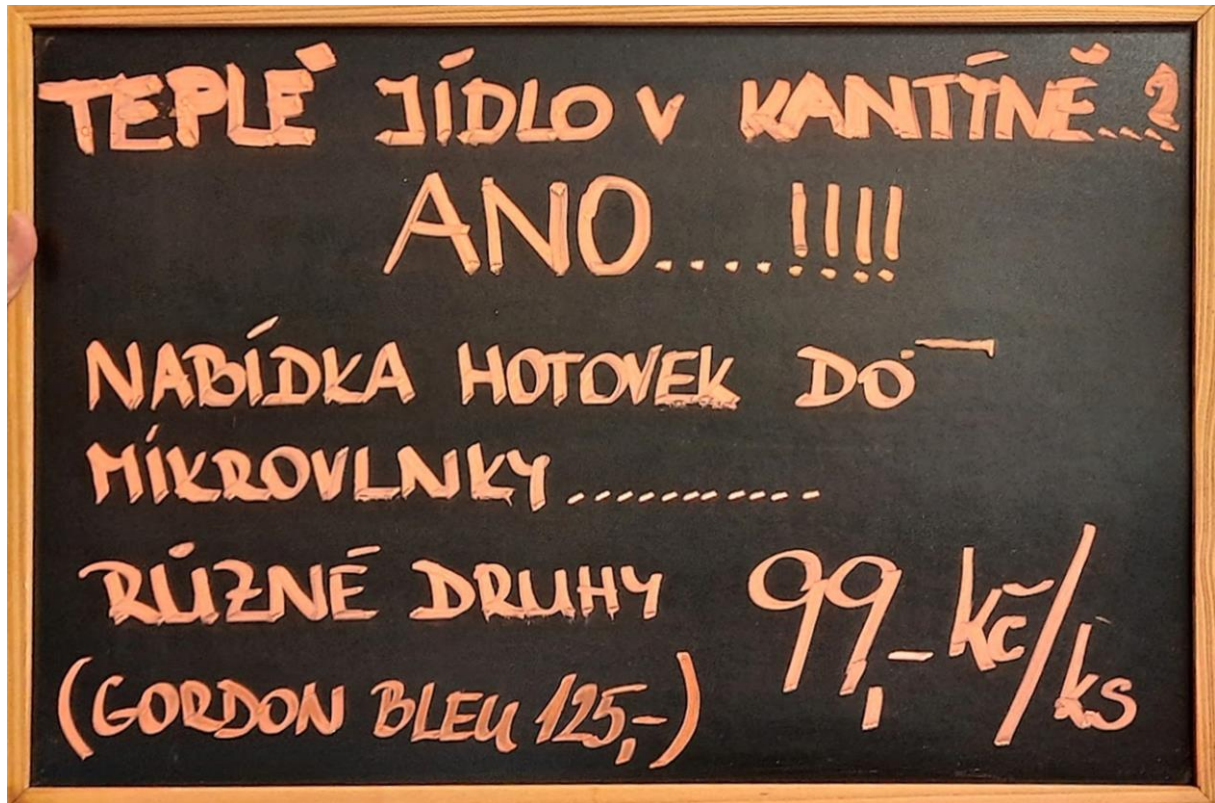 TEPLÉ JÍDLO V KANTÝNĚ...?
ANO.....!!!!
NABÍDKA HOTOVEK DO
MÍKROVLNKY...........
RŮZNÉ DRUHY 99,- Kč/ks
(GORDON BLEU 125,-)